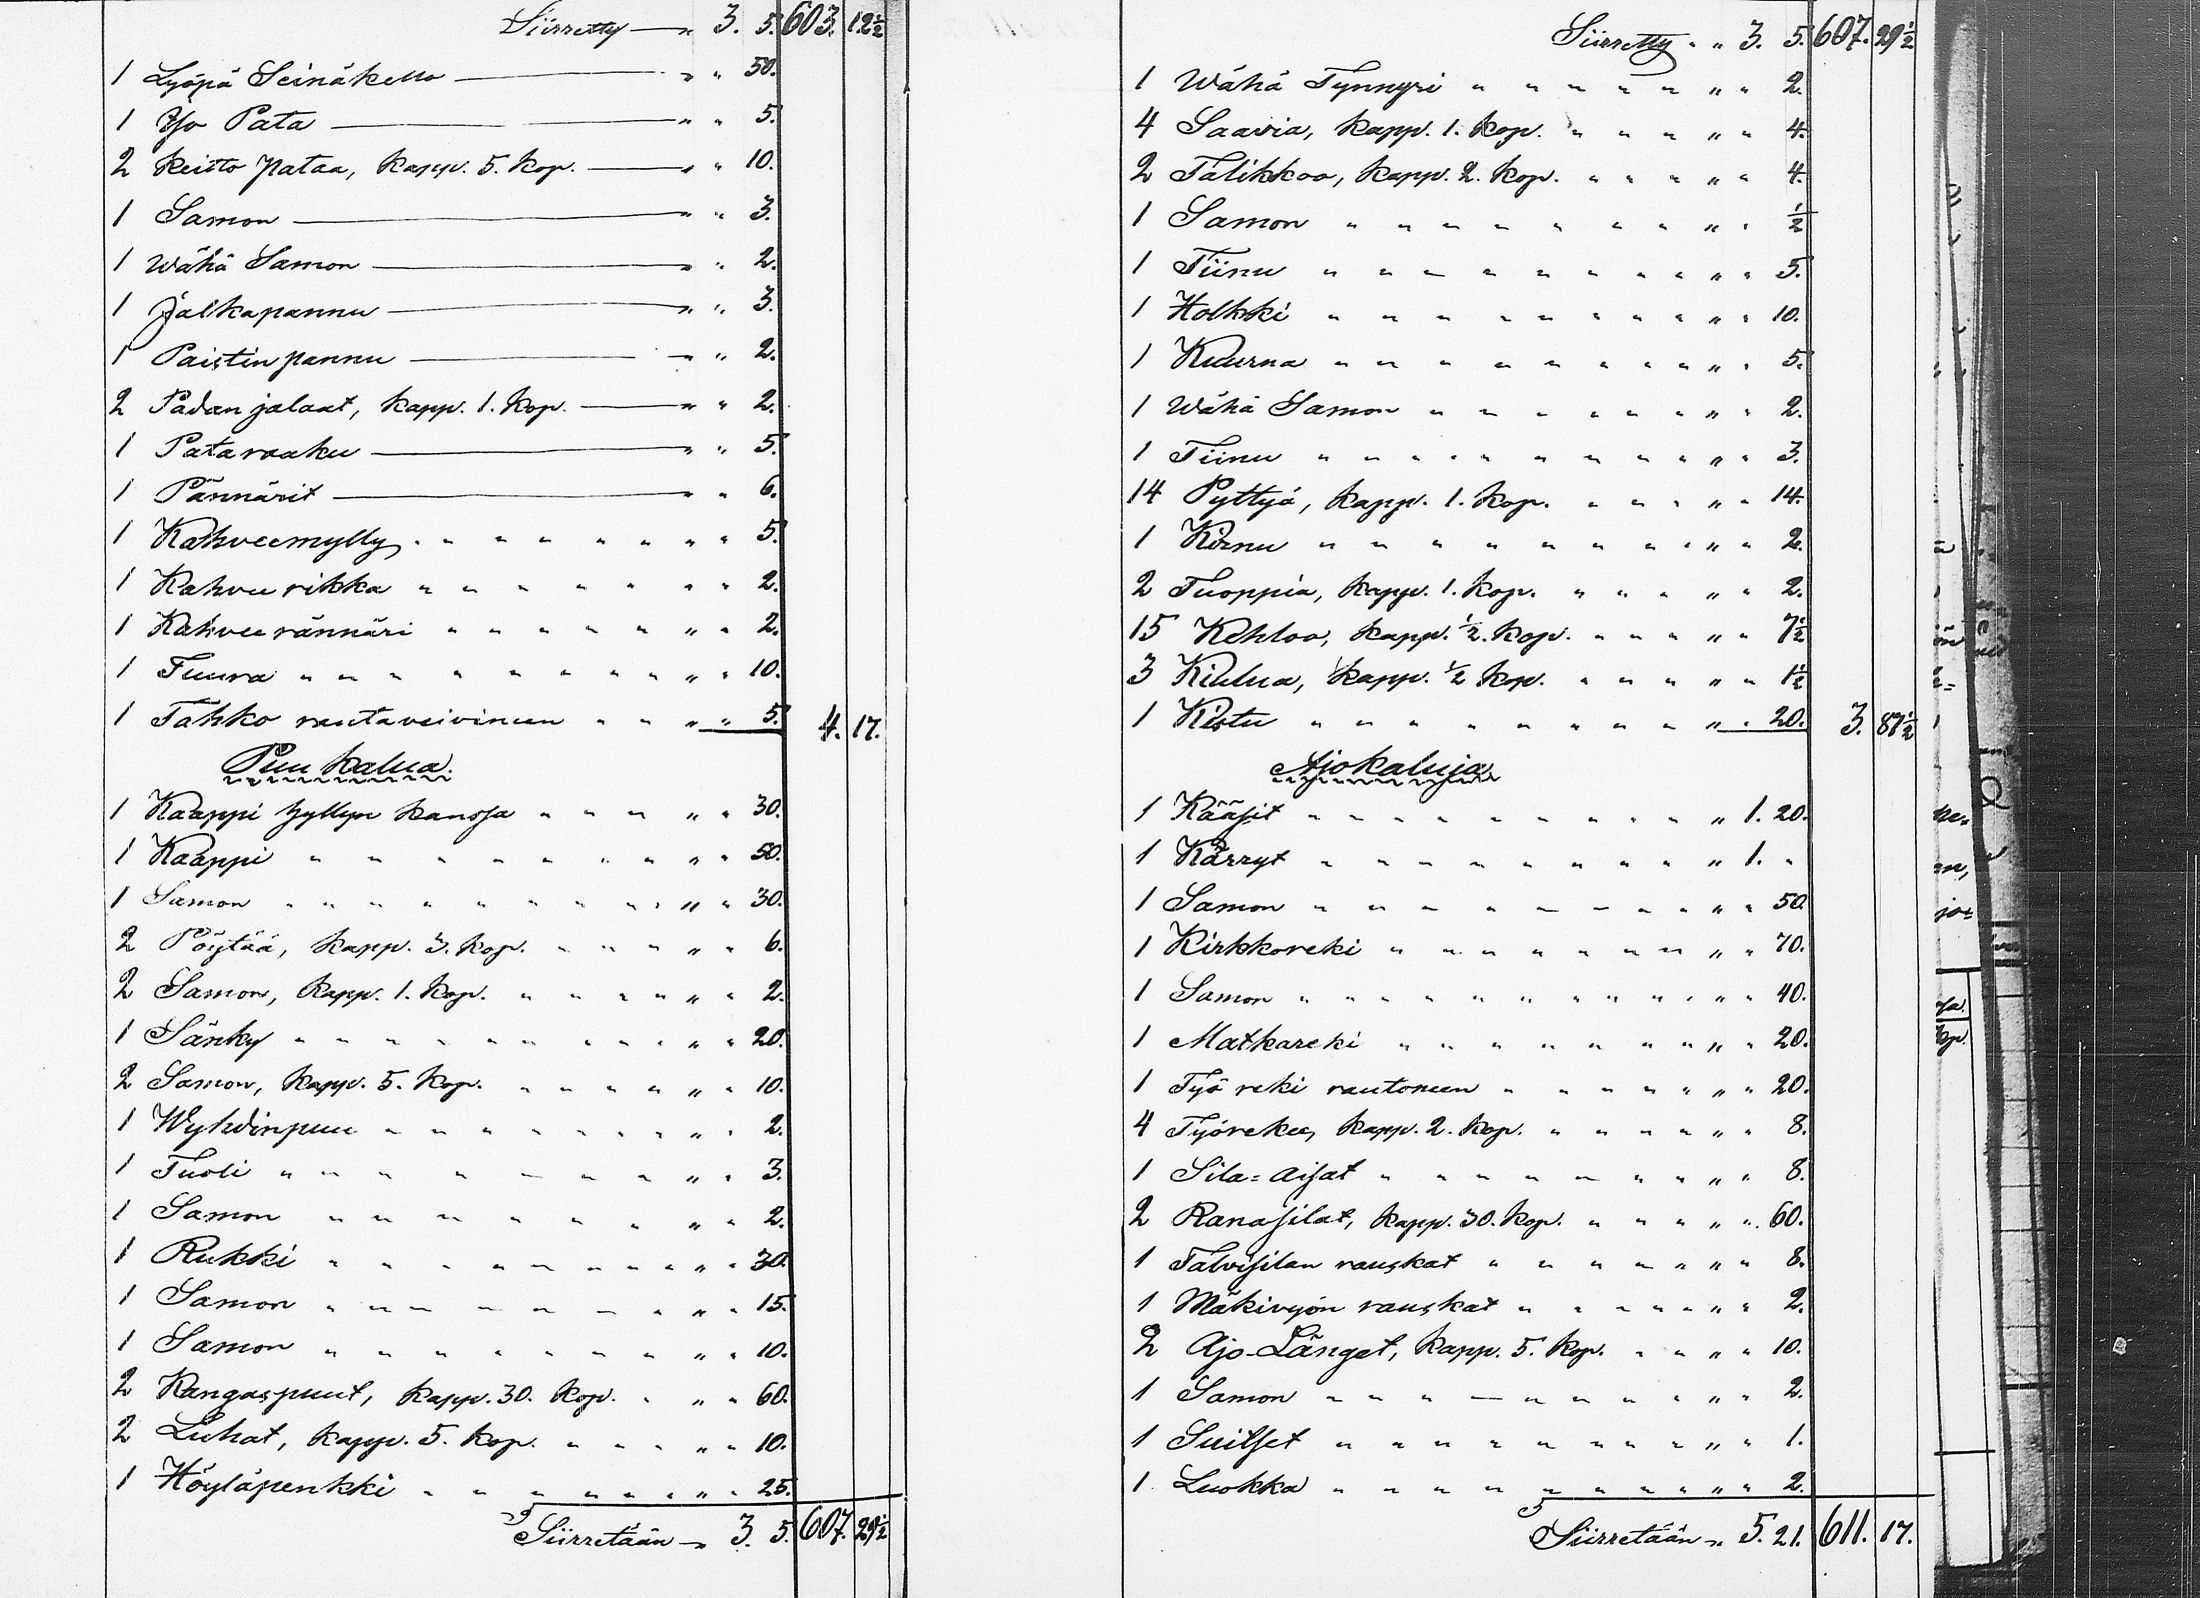 Siirretty — " 3. 5. 603. 12½
1 Lyöpä Seinäkello — " " 50.
1 Iso Pata — " " 5.
2 Keitto pataa, kapp. 5. kop. — " " 10.
1 Samon — " " 3.
1 Wähä Samon — " " 2.
1 Jalkapannu — " " 3.
1 Paistin pannu — " " 2.
2 Padan jalaat, kapp. 1. kop. — " " 2.
1 Pata raaku — " " 5.
1 Pännärit — " " 6.
1 Kahveemylly " " 5.
1 Kahvee rikka " " 2.
1 Kahvee rännäri " " 2.
1 Tuura " " 10.
1 Tahko rautaveivineen " " 5. 4. 17.
Puu kalua.
1 Kaappi hyllyn kanssa " " 30.
1 Kaappi " " 50.
1 Samon " " 30.
2 Pöytää, kapp. 3. kop. " " 6.
2 Samon, kapp. 1. kop. " " 2.
1 Sänky " " 20.
2 Samon, kapp. 5. kop. " " 10.
1 Wyhdinpuu " " 2.
1 Tuoli " " 3.
1 Samon " " 2.
1 Rukki " " 30.
1 Samon " " 15.
1 Samon " " 10.
2 Kangaspuut, kapp. 30. kop. " " 60.
2 Luhat, kapp. 5. kop. " " 10.
1 Höyläpenkki " " 25.
Siirretään — " 3. 5. 607. 29½
Siirretty " " 3. 5. 607. 29½
1 Wähä Tynnyri " " 2.
4 Saavia, kapp. 1. kop. " " 4.
2 Talikkoo, kapp. 2. kop. " " 4.
1 Samon " " ½
1 Tiinu " " 5.
1 Holkki " " 10.
1 Kuurna " " 5.
1 Wähä Samon " " 2.
1 Tiinu " " 3.
14 Pyttyä, kapp. 1. kop. " " 14.
1 Kirnu " " 2.
2 Tuoppia, kapp. 1. kop. " " 2.
15 Kehloo, kapp. ½. kop. " " 7½
3 Kiulua, kapp. ½ kop. " " 1½
1 Kistu " " 20. 3. 87½
Ajokaluja.
1 Kääsit " 1. 20.
1 Kärryt " 1. "
1 Samon " " 50.
1 Kirkkoreki " " 70.
1 Samon " " 40.
1 Matkareki " " 20.
1 Työ reki rautoneen " " 20.
4 Työrekee, kapp. 2. kop. " " 8.
1 Sila=aisat " " 8.
2 Ranasilat, kapp. 30. kop. " " 60.
1 Talvisilan rauskat " " 8.
1 Mäkivyön rauskat " " 2.
2 Ajo-Länget, kapp. 5. kop. " " 10.
1 Samon " " 2.
1 Suitset " " 1.
1 Luokka " " 2.
Siirretään " 5. 21. 611. 17.